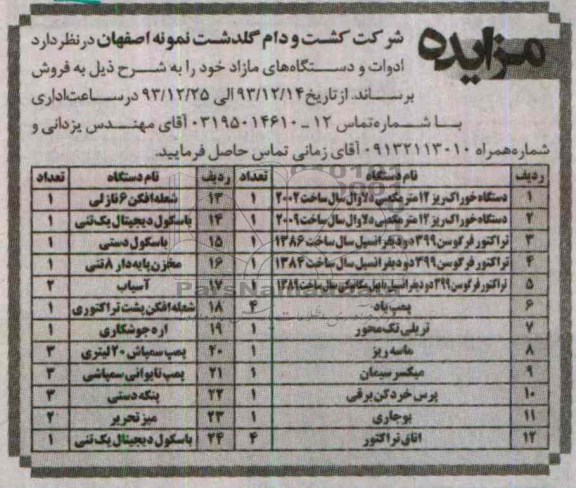 مزایده
شرکت کشت و دام گلدشت نمونه اصفهان در نظر دارد
ادوات و دستگاه‌های مازاد خود را به شرح ذیل به فروش
برساند. از تاریخ ۹۳/۱۲/۱۴ الی ۹۳/۱۲/۲۵ در ساعت اداری
با شماره تماس ۱۲ - ۰۳۱۹۵۰۱۴۶۱۰ آقای مهندس یزدانی و
شماره همراه ۰۹۱۳۲۱۱۳۰۱۰ آقای زمانی تماس حاصل فرمایید.
ردیف نام دستگاه تعداد ردیف نام دستگاه تعداد
۱ دستگاه خوراک ریز ۱۲ متر مکعبی دلاوال سال ساخت ۲۰۰۲ ۱ ۱۳ شعله افکن ۶ نازلی ۱
۲ دستگاه خوراک ریز ۱۲ متر مکعبی دلاوال سال ساخت ۲۰۰۹ ۱ ۱۴ باسکول دیجیتال یک تنی ۱
۳ تراکتور فرگوسن ۳۹۹ دو دیفرانسیل سال ساخت ۱۳۸۶ ۱ ۱۵ باسکول دستی ۱
۴ تراکتور فرگوسن ۳۹۹ دو دیفرانسیل سال ساخت ۱۳۸۴ ۱ ۱۶ مخزن پایه دار ۸ تنی ۱
۵ تراکتور فرگوسن ۳۹۹ دو دیفرانسیل با بیل مکانیکی سال ساخت ۱۳۸۹ ۱ ۱۷ آسیاب ۲
۶ پمپ باد ۴ ۱۸ شعله افکن پشت تراکتوری ۱
۷ تریلی تک محور ۱ ۱۹ اره جوشکاری ۱
۸ ماسه ریز ۱ ۲۰ پمپ سمپاش ۲۰ لیتری ۳
۹ میکسر سیمان ۱ ۲۱ پمپ تایوانی سمپاشی ۳
۱۰ پرس خردکن برقی ۱ ۲۲ پنکه دستی ۳
۱۱ بوجاری ۱ ۲۳ میز تحریر ۲
۱۲ اتاق تراکتور ۴ ۲۴ باسکول دیجیتال یک تنی ۱